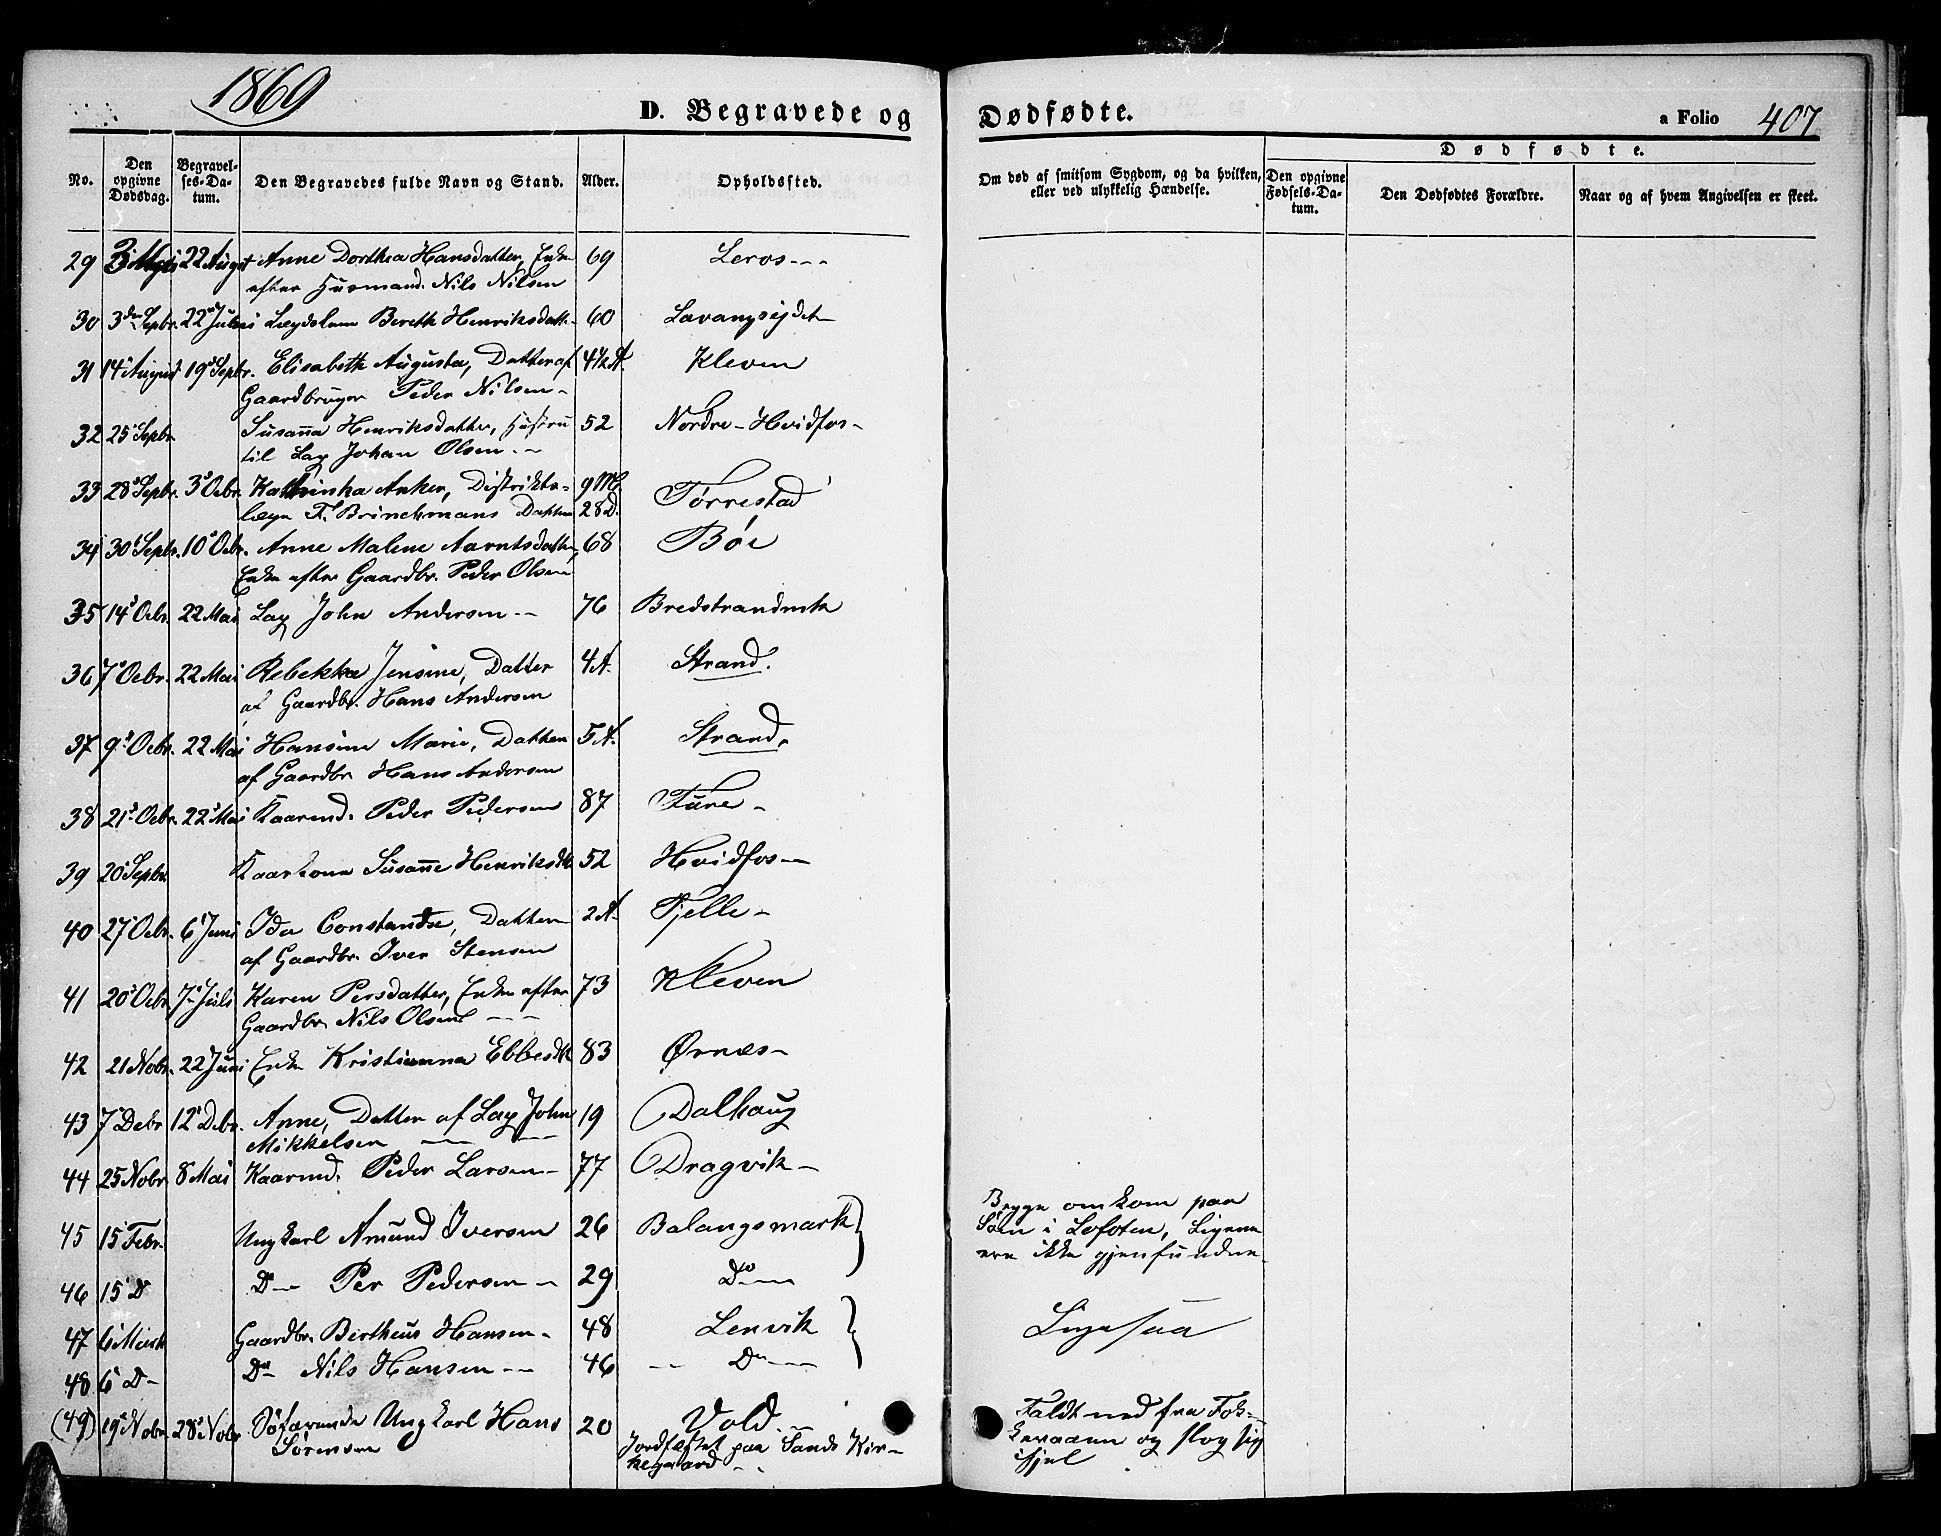 1869
D. Begravede og Dødfødte.
a Folio 407
No. Den opgivne Dødsdag. Begravelses-Datum. Den Begravedes fulde Navn og Stand. Alder. Opholdssted. Om død af smitsom Sygdom, og da hvilken, eller ved ulykkelig Hændelse. Dødfødte. Den opgivne Fødsels-Datum. Den Dødfødtes Forældre. Naar og af hvem Angivelsen er skeet.
29 3 22 August Anne Dorthea Hansdatter, Enke 69 Leros
efter Husmand. Nils Nilsen
30 3die Sepbr. 22 Juli Lægdslem Bereth Henriksdatt. 60 Lavangsejdet
31 14 August 19 Sepbr. Elisabeth Augusta, Datter af 4½ A. Kleven
Gaardbruger Peder Nilsen
32 25 Sepbr Susanna Henriksdatter, Hustru 52 Nordre-Hvidfos
til Lap Johan Olsen
33 28 Sepbr. 3 Ocbr. Kathinka Anker, Distrikts- 9 M. Tørrestad
læge F. Brinchmans Datter 28 D.
34 30 Septbr. 10 Ocbr. Anne Malene Aarntsdatter, 68 Bøe
Enke efter Gaardbr. Peder Olsen
35 14 Ocbr. 22 Mai Lap John Andersen 76 Bredstrandmk
36 7 Ocbr. 22 Mai Rebekka Jensine, Datter 4 A. Strand.
af Gaardbr. Hans Andersen
37 9 Ocbr. 22 Mai Hansine Marie, Datter 5 A. Strand.
af Gaardbr Hans Andersen
38 21 Ocbr. 22 Mai Kaarmd. Peder Pedersen 87 Fure
39 20 Sepbr. Kaarkone Susanne Henriksdt 52 Hvidfos
40 27 Ocbr. 6 Juni Ida Constandse, Datter 2 A. Fjelle
af Gaardbr. Iver Stensen
41 20 Ocbr 7 Juli Karen Persdatter, Enke efter 73 Kleven
Gaardbr Nils Olsen
42 21 Nobr. 22 Juni Enke Kristianna Ebbesdt 83 Ørnæs
43 7 Debr 12 Debr. Anne, Datter af Lap John 19 Dalhaug
Mikkelsen
44 25 Nobr. 8 Mai Kaarmd. Peder Larsen 77 Dragvik
45 15 Febr. Ungkarl Amund Iversen 26 Balangsmark } Begge omkom paa
Søen i Lofoten, Ligene
ere ikke gjenfundne
46 15 D Do Per Pedersen 29 Do
47 6 Marts Gaardbr. Birtheus Hansen 48 Lenvik } Ligesaa
48 6 D Do Nils Hansen 46 Do
(49) 19 Nobr. 28 Nobr Søfarende Ungkarl Hans 20 Vold. Faldt ned fra Fok-
Sørensen Jordfæstet paa Sands Kir- keraaen og slog sig
kegaard ihjel